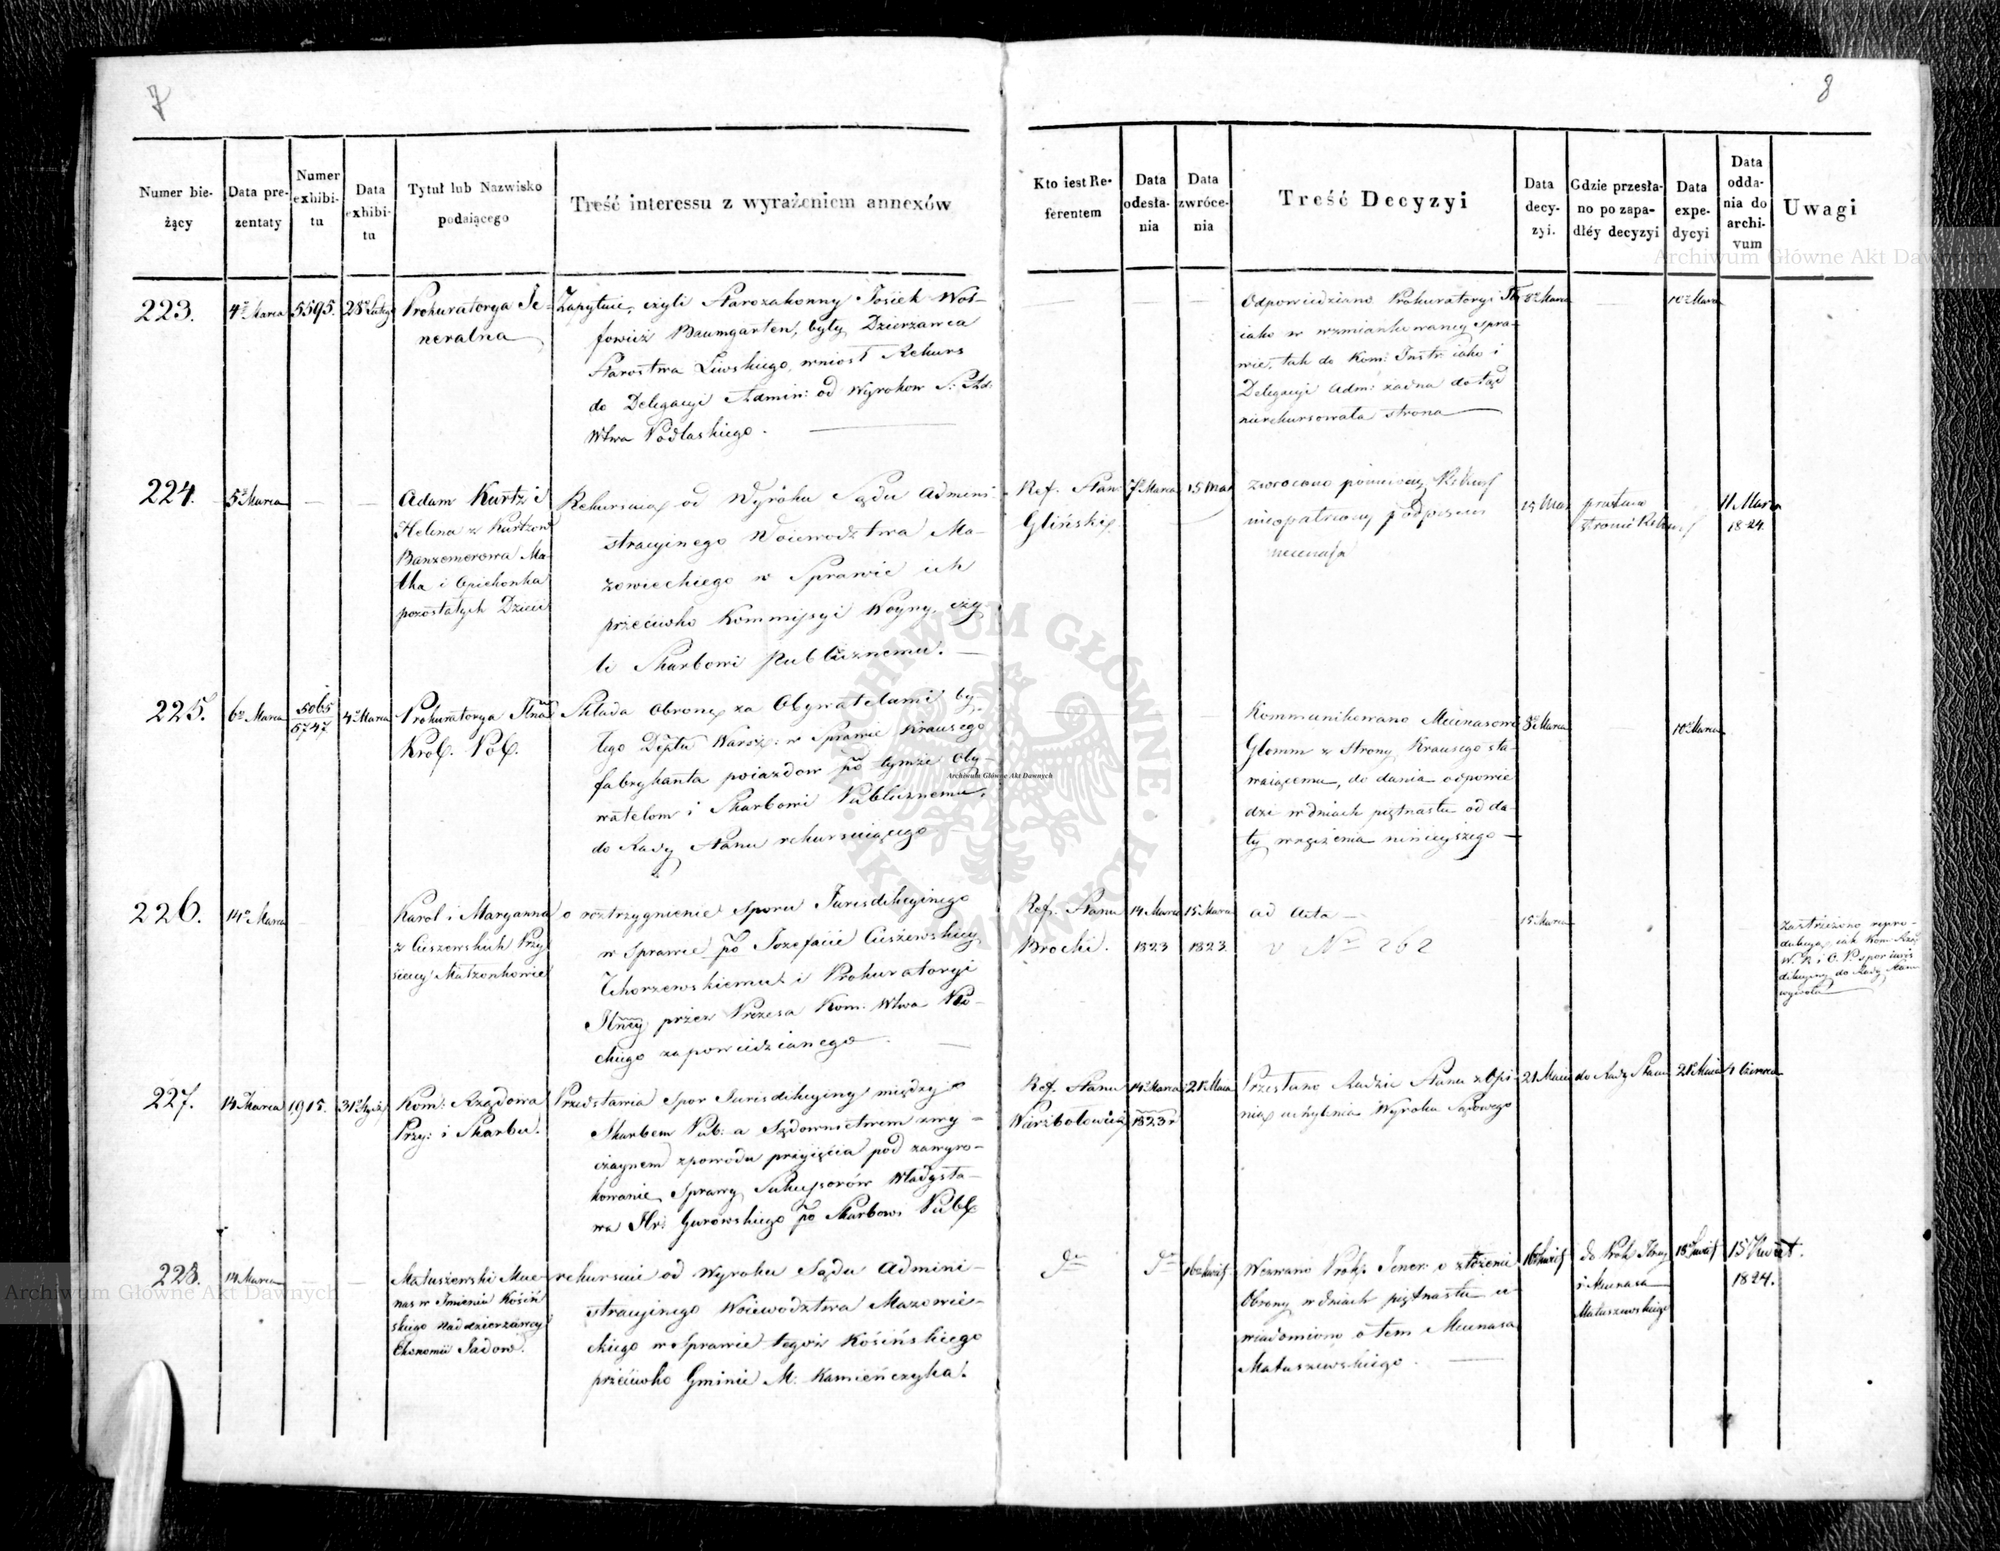 7
8
Numer bieżący
Data prezentaty
Numer exhibitu
Data exhibitu
Tytuł lub Nazwisko podaiącego
Treść interessu z wyrażeniem annexów
Kto iest Referentem
Data odesłania
Data zwrócenia
Treść Decyzyi
Data decyzyi.
Gdzie przesłano po zapadłéy decyzyi
Data expedycyi
Data oddania do archivum
Uwagi
223.
4º Marca
5595.
28º Lutego
Prokuratorya Je-
neralna
Zapytuie, czyli Starozakonny Josiek Wol-
fowicz Baumgarten, były Dzierżawca
Starostwa Liwskiego, wniosł Rekurs
do Delegacyi Admin: od Wyrokow S: Ad:
Wtwa Podlaskiego.
Odpowiedziano Prokuratoryi
iako w wzmiankowaney spra-
wie, tak do Kom: Instr: iako i
Delegacyi Adm: żadna dotąd
nierekursowała strona
8º Marca
10º Marca
224.
5º Marca
Adam Kurtz i
Helena z Kurtzow
Banzemerowa Ma-
tka i Opiekonka
pozostałych Dzieci
Rekursuią od Wyroku Sądu Admini-
stracyinego Woiewodztwa Ma-
zowieckiego w Sprawie ich
przeciwko Kommissyi Woyny, czy-
li Skarbowi Publicznemu.
Ref. Stanu
Gliński
7º Marca
15 Mar
zwrocono
nieopatrzony podpisem
15 Mar
11 Marca
1824.
225.
6º Marca
5065
5747
4º Marca
Prokuratorya
Krol. Pol.
Składa Obronę za Obywatelami by-
łego Dptu Warsz: w Sprawie Krausego
fabrykanta poiazdow po tymże Oby-
watelom i Skarbowi Publicznemu,
do Rady Stanu rekursuiącego
Kommunikowano Mecenasowi
Glomm z Strony Krausego sta-
waiącemu, do dania odpowie
dzi w dniach piętnastu od da-
ty wręczenia ninieyszego
8º Marca
10º Marca
226.
14º Marca
Karol i Maryanna
z Ciszewskich Przy
siecy Małżonkowie
o rozstrzygnienie Sporu Jurisdikcyinego
w Sprawie po Jozefacie Ciszewskiey
Tchorzewskiemu i Prokuratoryi
przez Prezesa Kom: Wtwa Pło-
ckiego zapowiedzianego
Ref. Stanu
Brocki.
14 Marca
1823
15 Marca
1823.
ad acta
v Nr 262
15 Marca
Zastrzeżono repro-
dukcyą, iak Kom: Rzą:
W. R. i O. P. spor iuris
dikcyiny do Rady Stanu
wywoła
227.
14 Marca
1915.
Kom: Rządowa
Przy: i Skarbu.
Przedstawia Spor Jurisdikcyiny między
Skarbem Pub: a Sądownictwem zwy-
czaynem z powodu przyięcia pod zawyro-
kowanie Sprawy Sukcessorów Władysła-
wa Hr: Gurowskiego po Skarbowi Publ
Ref. Stanu
Wierzbołowicz
14 Marca
1823 r
21 Marca
Przesłano Radzie Stanu z Opi-
nią uchylenia Wyroku Sądowego
21 Marca
do Rady Stanu
4 Czerwca
228.
14 Marca
Matuszewski Mece-
nas w Imieniu Kosiń
skiego Naddzierżawcy
Ekonomii Jadow.
rekursuie od Wyroku Sądu Admini-
stracyinego Woiewodztwa Mazowie-
ckiego w Sprawie tegoż Kosińskiego
przeciwko Gminie M: Kamieńczyka.
do
do
16 Kwiet
Wezwano Prok: Jener: o złożenie
Obrony w dniach piętnastu u-
wiadomiono o tem Mecenasa
Matuszewskiego.
16 Kwiet
do Prok:
i Mecenasa
Matuszewskiego
18 Kwiet
15 Kwiet.
1824.
Archiwum Główne Akt Dawnych
Archiwum Główne Akt Dawnych
Archiwum Główne Akt Dawnych
ARCHIWUM GŁÓWNE AKT DAWNYCH